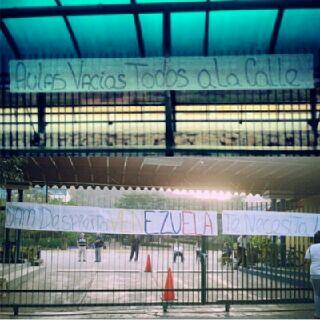 AULAS VACIAS TODOS a LA Calle
SAM Despierta VENEZUELA Te Necesita